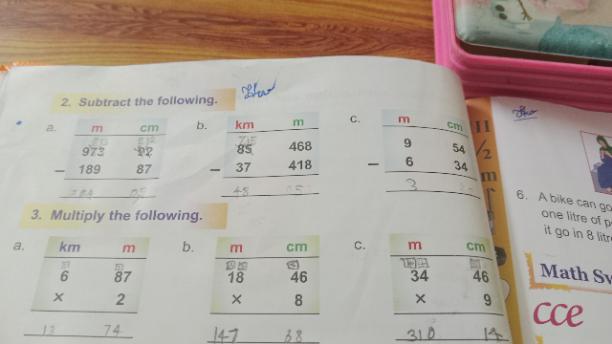 2. Subtract the following.
a. m cm
973 22
− 189 87
b. km m
85 468
− 37 418
48 050
c. m cm
9 54
− 6 34
3
3. Multiply the following.
a. km m
6 87
× 2
13 74
b. m cm
18 46
× 8
147 68
c. m cm
34 46
× 9
310 14
6. A bike can go
one litre of p
it go in 8 litr
Math Sw
cce